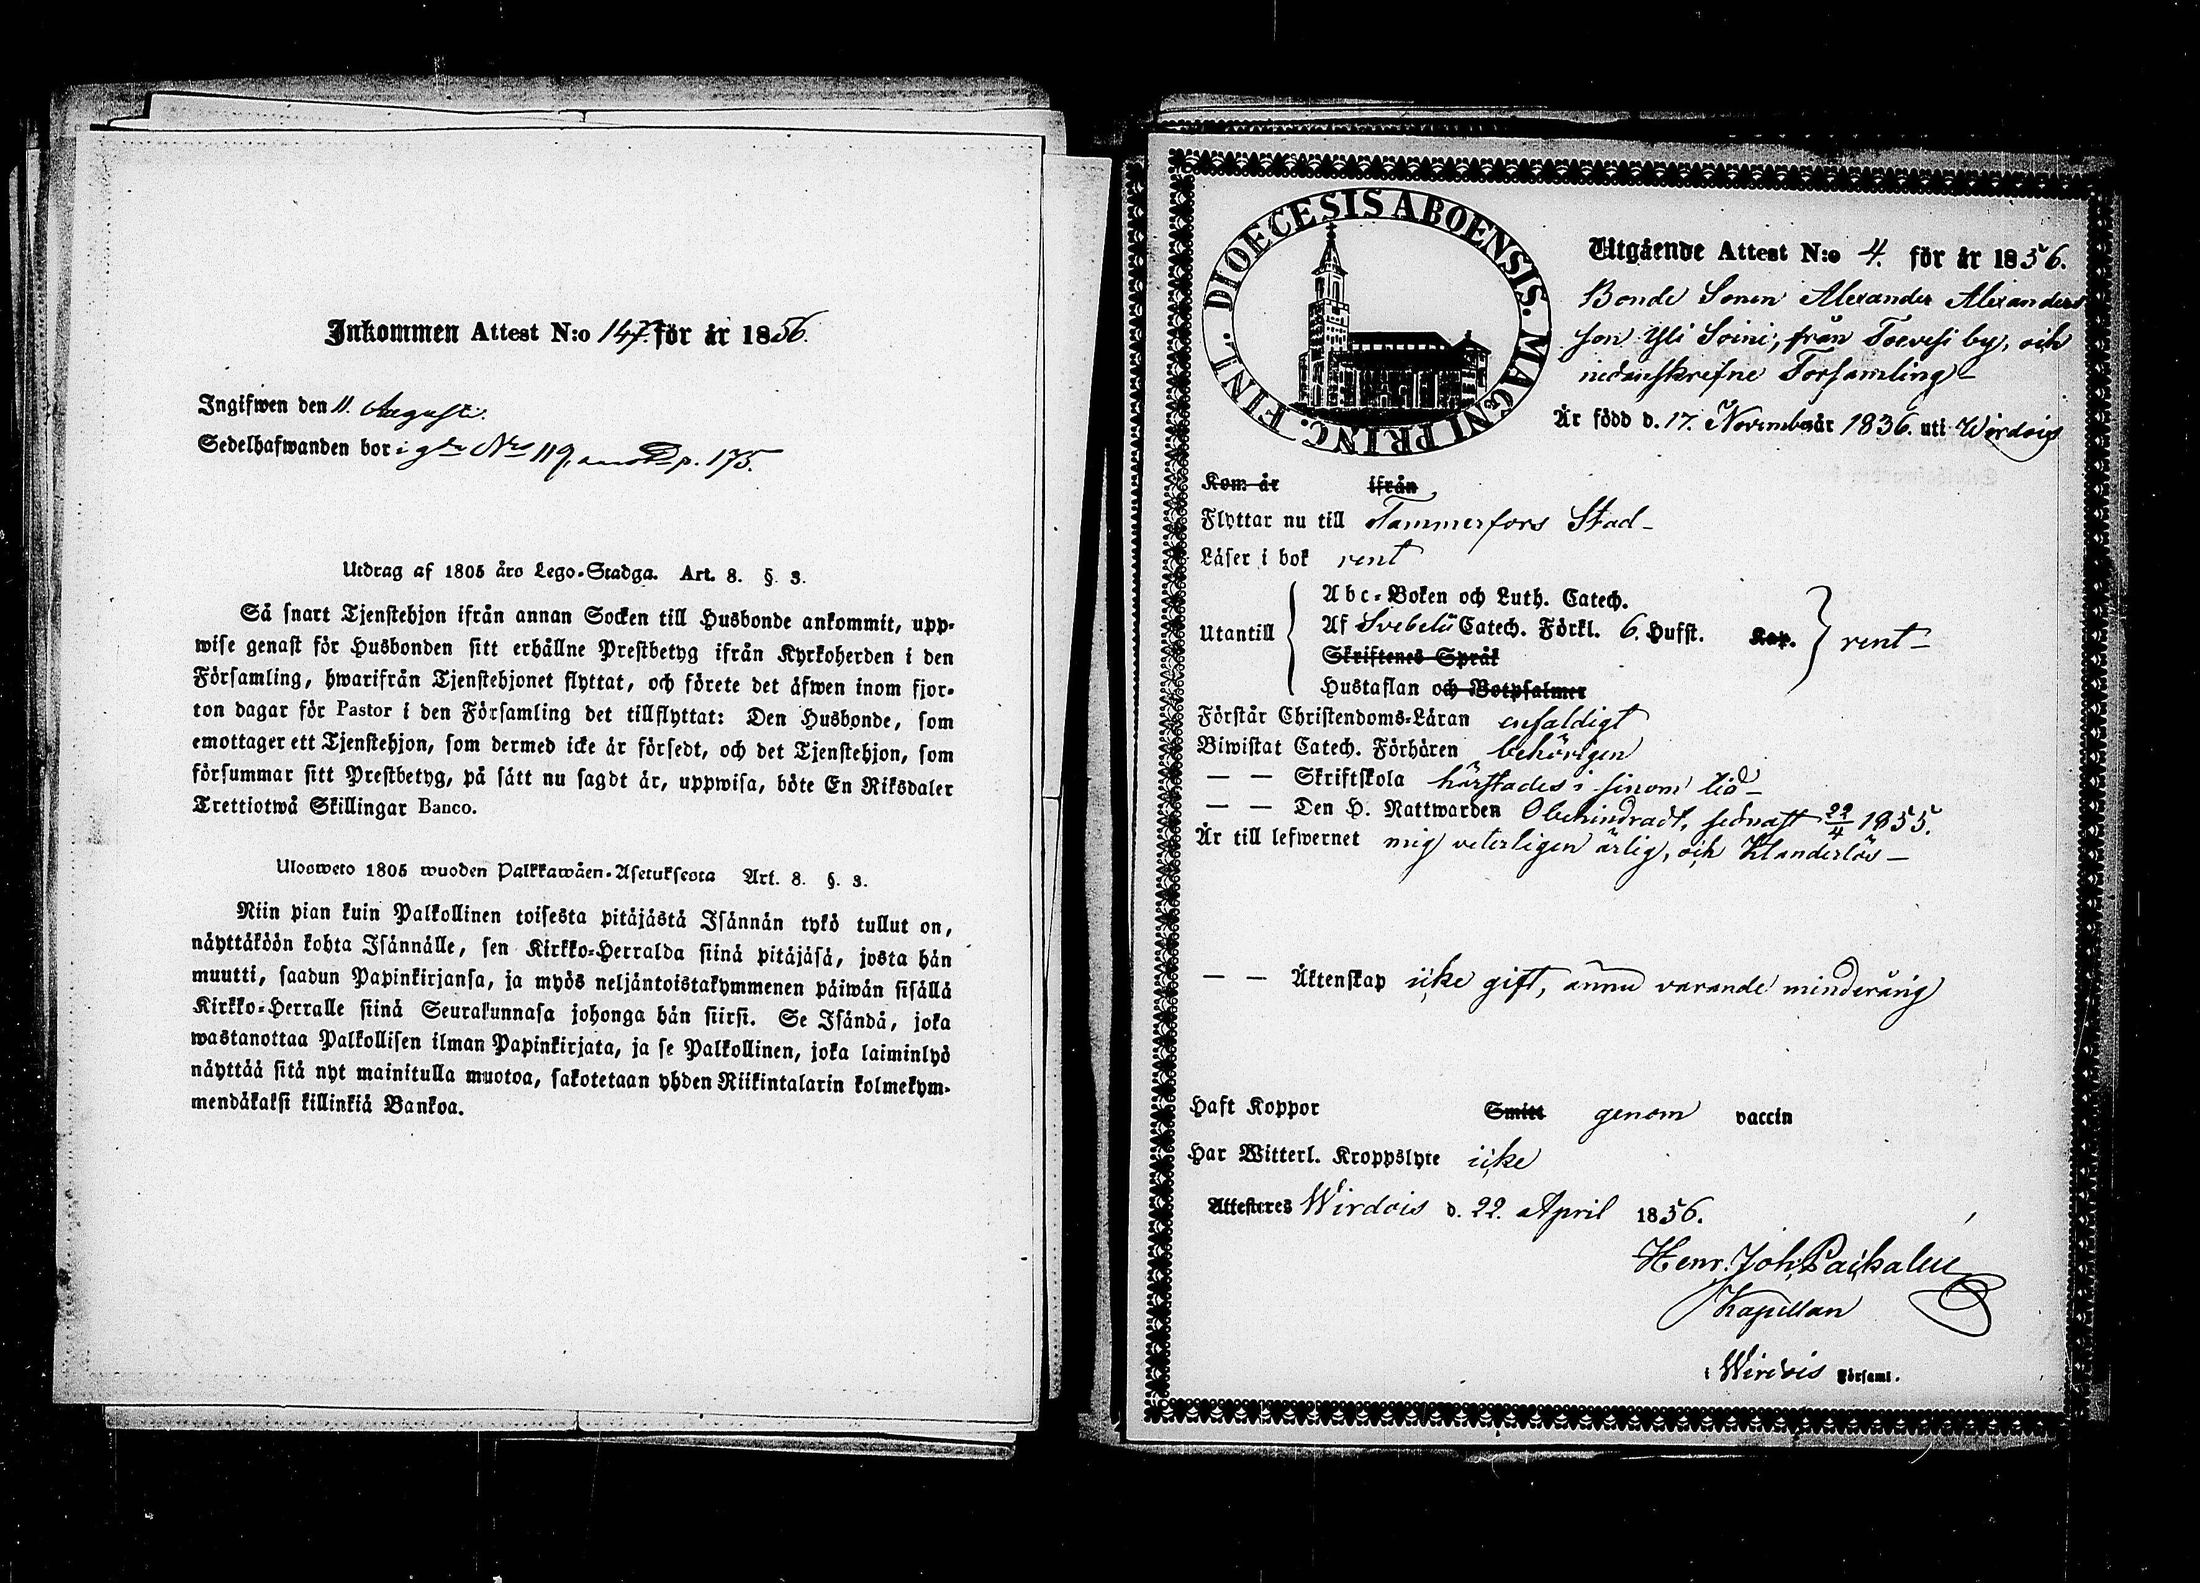 Inkommen Attest N:o 147. för år 1856.
Ingifwen den 11. Augusti.
Sedelhafwanden bor i gdn Nro 119, p. 175.
Utdrag af 1805 års Lego-Stadga. Art. 8. §. 3.
Så snart Tjenstehjon ifrån annan Socken till Husbonde ankommit, upp-
wise genast för Husbonden sitt erhållne Prestbetyg ifrån Kyrkoherden i den
Församling, hwarifrån Tjenstehjonet flyttat, och förete det äfwen inom fjor-
ton dagar för Pastor i den Församling det tillflyttat: Den Husbonde, som
emottager ett Tjenstehjon, som dermed icke är försedt, och det Tjenstehjon, som
försummar sitt Prestbetyg, på sätt nu sagdt är, uppwisa, böte En Riksdaler
Trettiotwå Skillingar Banco.
Ulosweto 1805 wuoden Palkkawäen-Asetuksesta Art. 8. §. 3.
Niin pian kuin Palkollinen toisesta pitäjästä Isännän tykö tullut on,
näyttäköön kohta Isännälle, sen Kirkko-Herralda siinä pitäjäsä, josta hän
muutti, saadun Papinkirjansa, ja myös neljäntoistakymmenen päiwän sisällä
Kirkko-Herralle siinä Seurakunnasa johonga hän siirsi. Se Isändä, joka
wastanottaa Palkollisen ilman Papinkirjata, ja se Palkollinen, joka laiminlyö
näyttää sitä nyt mainitulla muotoa, sakotetaan yhden Riikintalarin kolmekym-
mendäkaksi killinkiä Bankoa.
DIOECESIS ABOENSIS. MAGNI PRINC. FINL.
Utgående Attest N:o 4. för år 1856.
Bonde Sonen Alexander Alexanders
son Yli Soini, från Toevesi by, och
nedanskrefne Församling -
Är född d. 17. November år 1836. uti Wirdois
Kom år ifrån
Flyttar nu till Tammerfors Stad -
Läser i bok rent
Abc-Boken och Luth. Catech.
Utantill Af Svebelii Catech. Förkl. 6. Hufst. Kap. rent -
Skriftenes Språk
Hustaflan och Botpsalmer
Förstår Christendoms-Läran enfaldigt
Biwistat Catech. Förhören behörigen
— — Skriftskola härstädes i sinom tid -
— — Den H. Nattwarden Obehindradt, sednast 22/4 1855.
Är till lefwernet mig veterligen ärlig, och klanderlös -
— — Äktenskap icke gift, ännu varande minderårig
Haft Koppor Smitt genom vaccin
Har Witterl. Kroppslyte icke
Attesteres Wirdois d. 22. April 1856.
Henr. Joh. Paikalen
Kapellan
i Wirdois Församl.